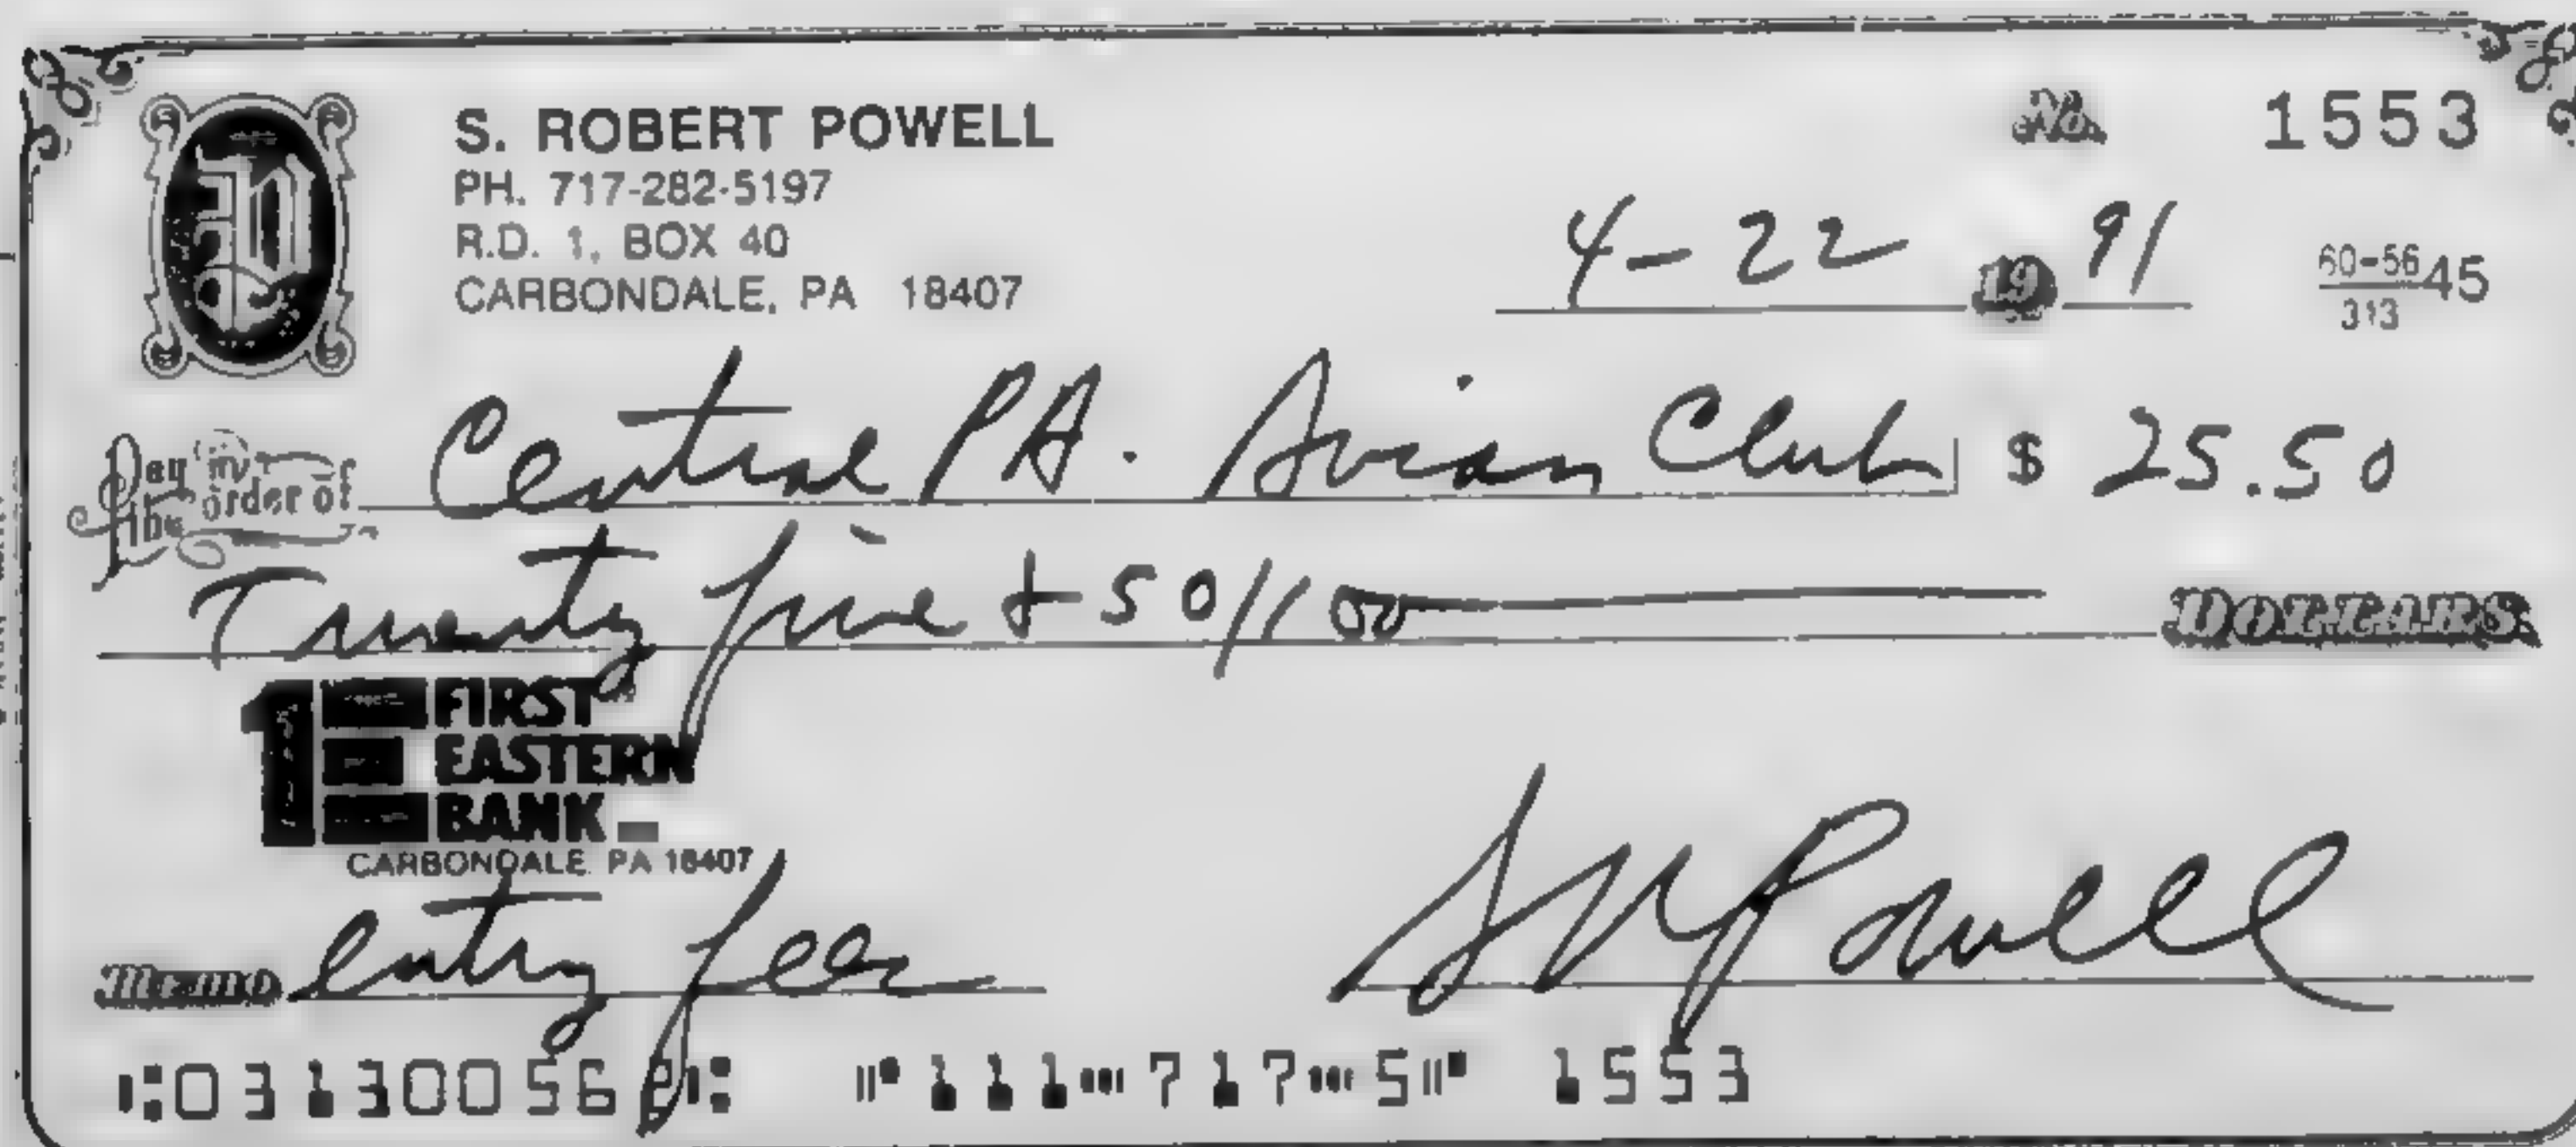 S. ROBERT POWELL
PH. 717-282-5197
R.D. 1, BOX 40
CARBONDALE, PA 18407
No. 1553
4-22 19 91
60-56 45
313
Pay to the order of Central PA. Avian Club $ 25.50
Twenty five + 50/100 DOLLARS
1 FIRST EASTERN BANK
CARBONDALE, PA 18407
Memo entry fees
S R Powell
031300562 111 717 5 1553